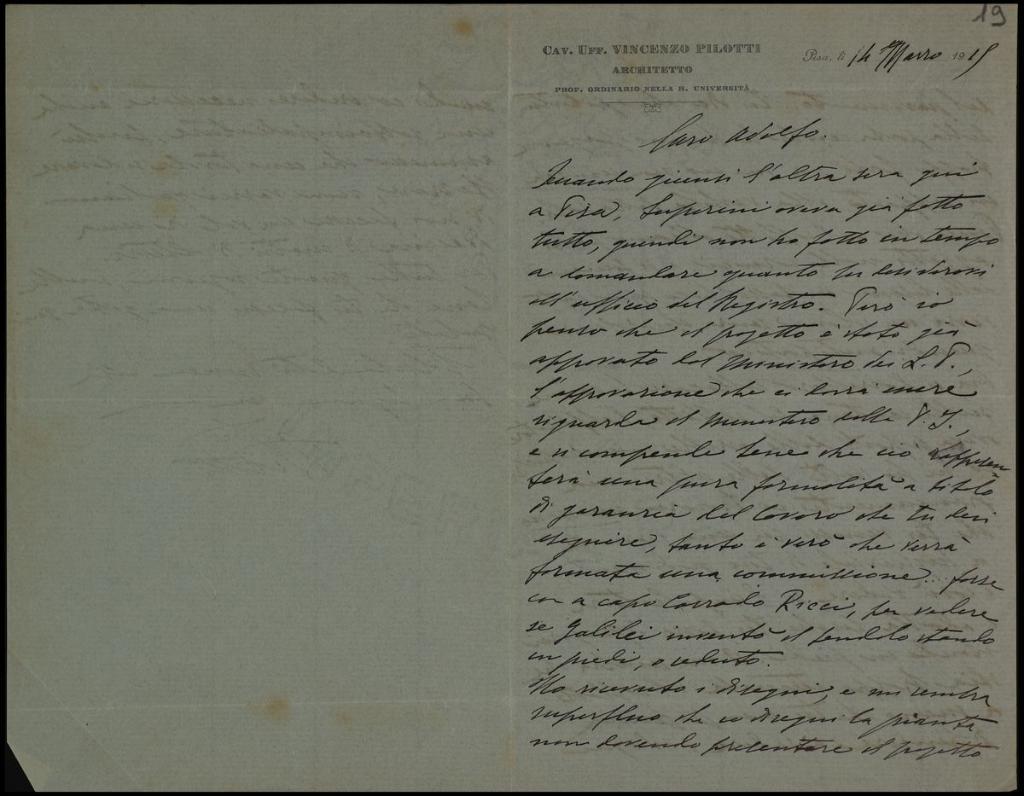 19
CAV. UFF. VINCENZO PILOTTI
ARCHITETTO
PROF. ORDINARIO NELLA R. UNIVERSITÀ
Pisa, li 14 Marzo 1915
Caro Adolfo.
Quando giunsi l'altra sera qui
a Pisa, Superini aveva già fatto
tutto, quindi non ho fatto in tempo
a domandare quanto tu desideravi
all'ufficio del Registro. Però io
penso che il progetto è stato già
approvato dal Ministero dei L. P.,
l'approvazione che ci dovrà essere
riguarda il Ministero della P. I.,
e si comprende bene che ciò rappresen
terà una pura formalità a titolo
di garanzia del lavoro che tu devi
eseguire, tanto è vero che verrà
formata una commissione... forse
con a capo Corrado Ricci, per vedere
se Galilei inventò il pendolo stando
in piedi, o seduto.
Ho ricevuto i disegni, e mi sembra
superfluo che io disegni la pianta
non dovendo presentare il progetto